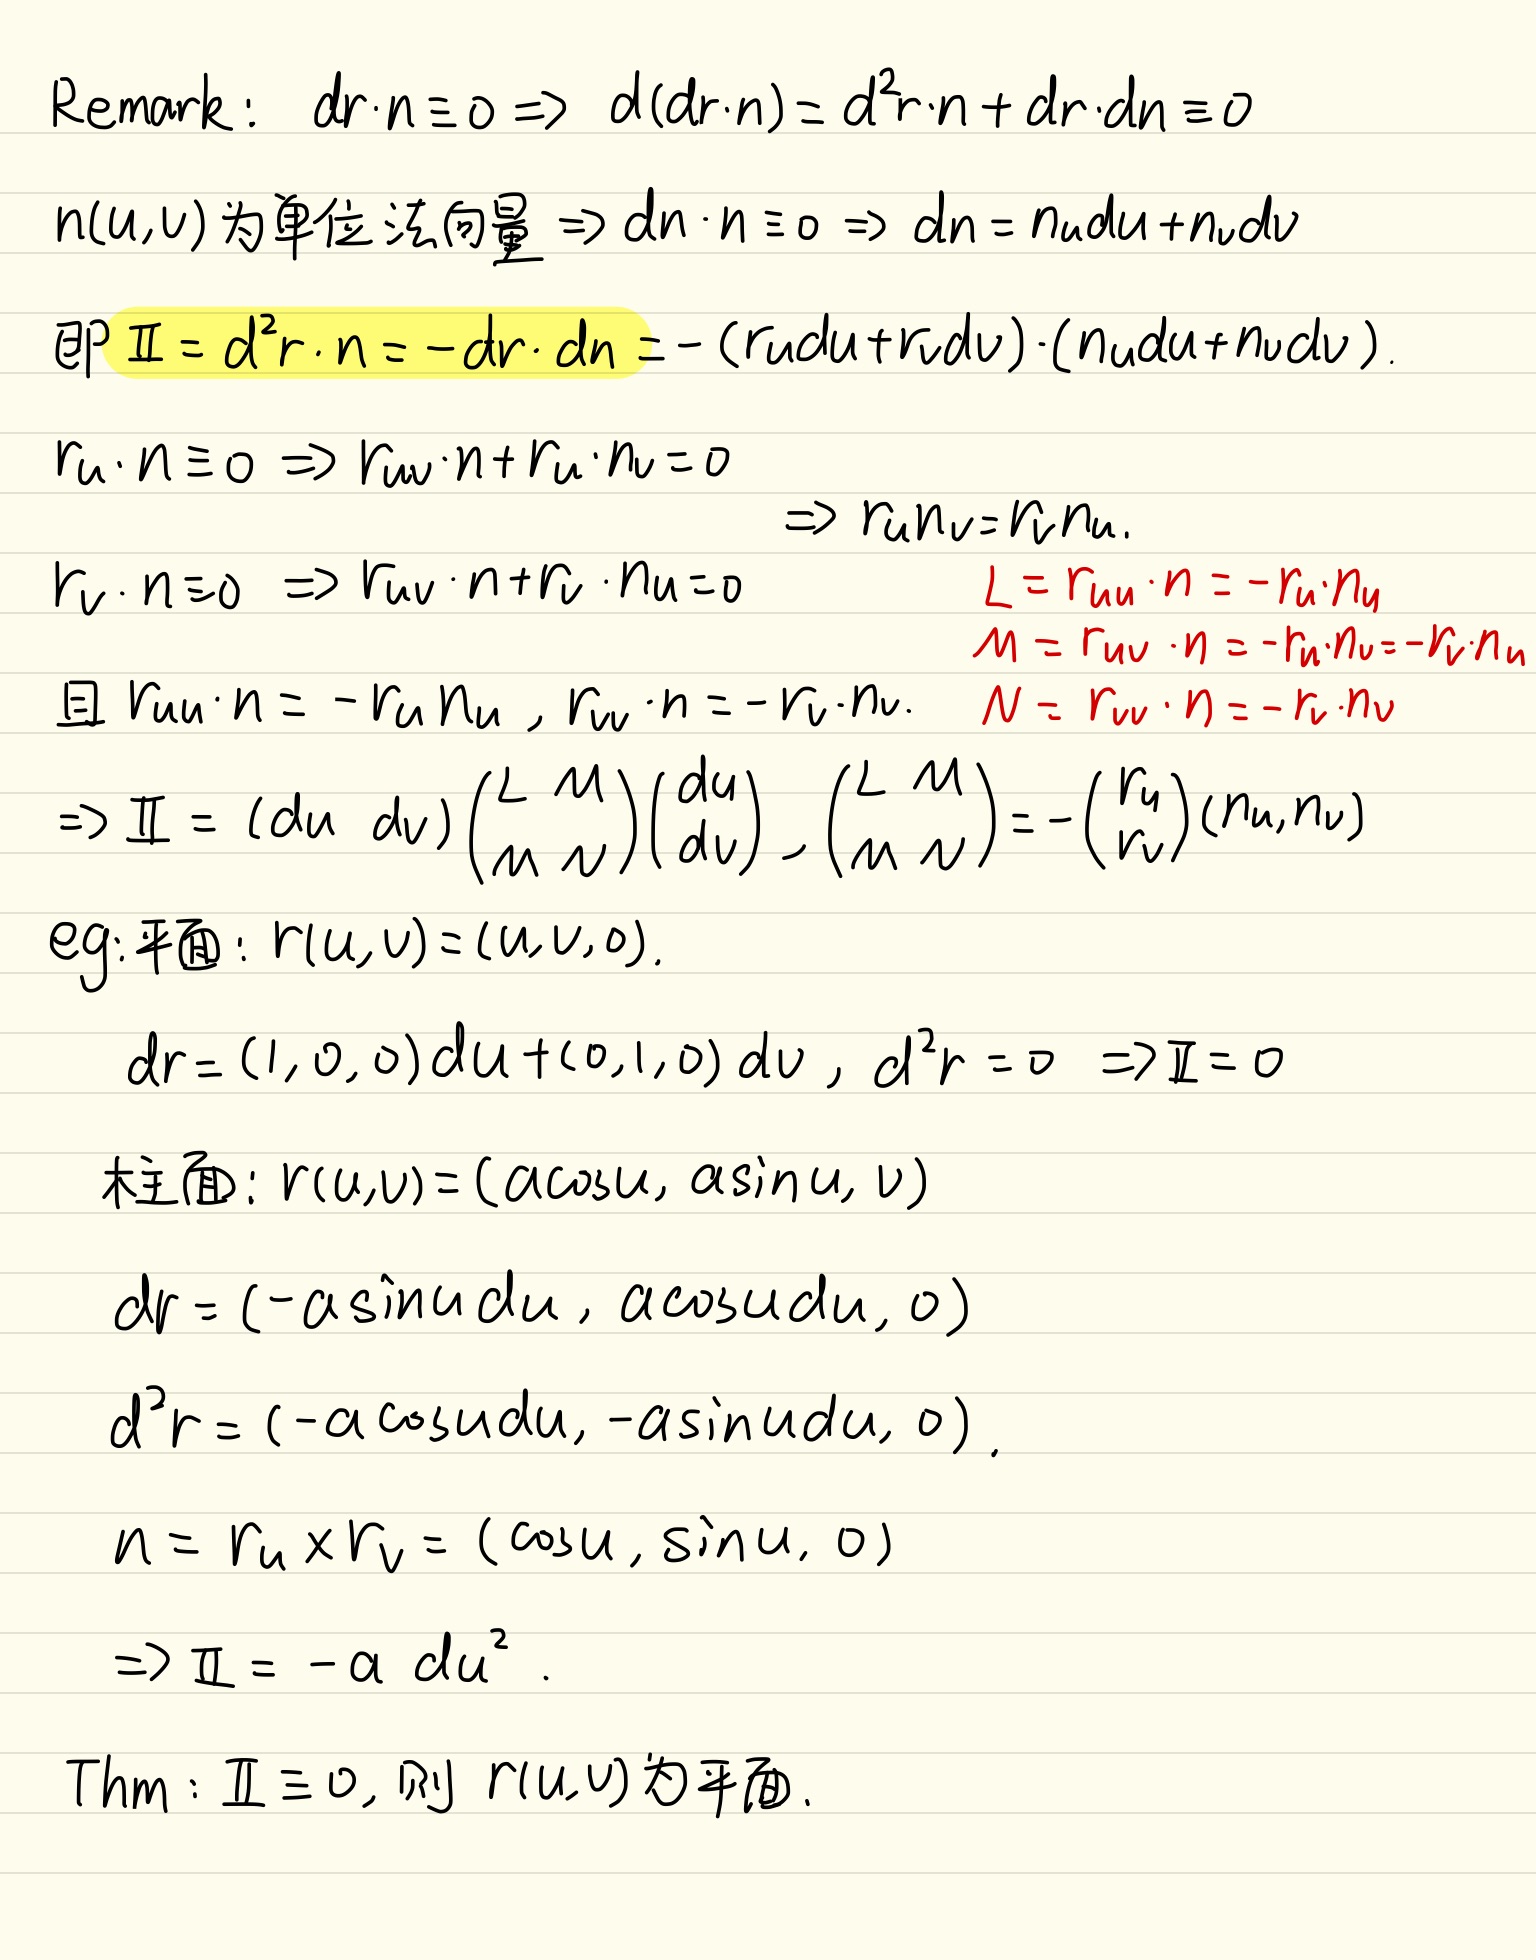 Remark: dr·n≡0 ⇒ d(dr·n) = d²r·n + dr·dn ≡ 0
n(u,v)为单位法向量 ⇒ dn·n≡0 ⇒ dn = nᵤdu+nᵥdv
即 Ⅱ = d²r·n = -dr·dn = -(rᵤdu+rᵥdv)·(nᵤdu+nᵥdv).
rᵤ·n≡0 ⇒ rᵤᵥ·n+rᵤ·nᵥ=0
⇒ rᵤnᵥ=rᵥnᵤ.
rᵥ·n≡0 ⇒ rᵤᵥ·n+rᵥ·nᵤ=0
L = rᵤᵤ·n = -rᵤ·nᵤ
M = rᵤᵥ·n = -rᵤ·nᵥ=-rᵥ·nᵤ
且 rᵤᵤ·n = -rᵤnᵤ, rᵥᵥ·n=-rᵥ·nᵥ.
N = rᵥᵥ·n = -rᵥ·nᵥ
⇒ Ⅱ = (du dv)(L M; M N)(du; dv), (L M; M N) = -(rᵤ; rᵥ)(nᵤ, nᵥ)
eg: 平面: r(u,v)=(u,v,0).
dr = (1,0,0)du+(0,1,0)dv, d²r=0 ⇒ Ⅱ=0
柱面: r(u,v)=(acosu, asinu, v)
dr = (-asinudu, acosudu, 0)
d²r = (-acosudu, -asinudu, 0).
n = rᵤ×rᵥ = (cosu, sinu, 0)
⇒ Ⅱ = -a du².
Thm: Ⅱ≡0, 则 r(u,v)为平面.